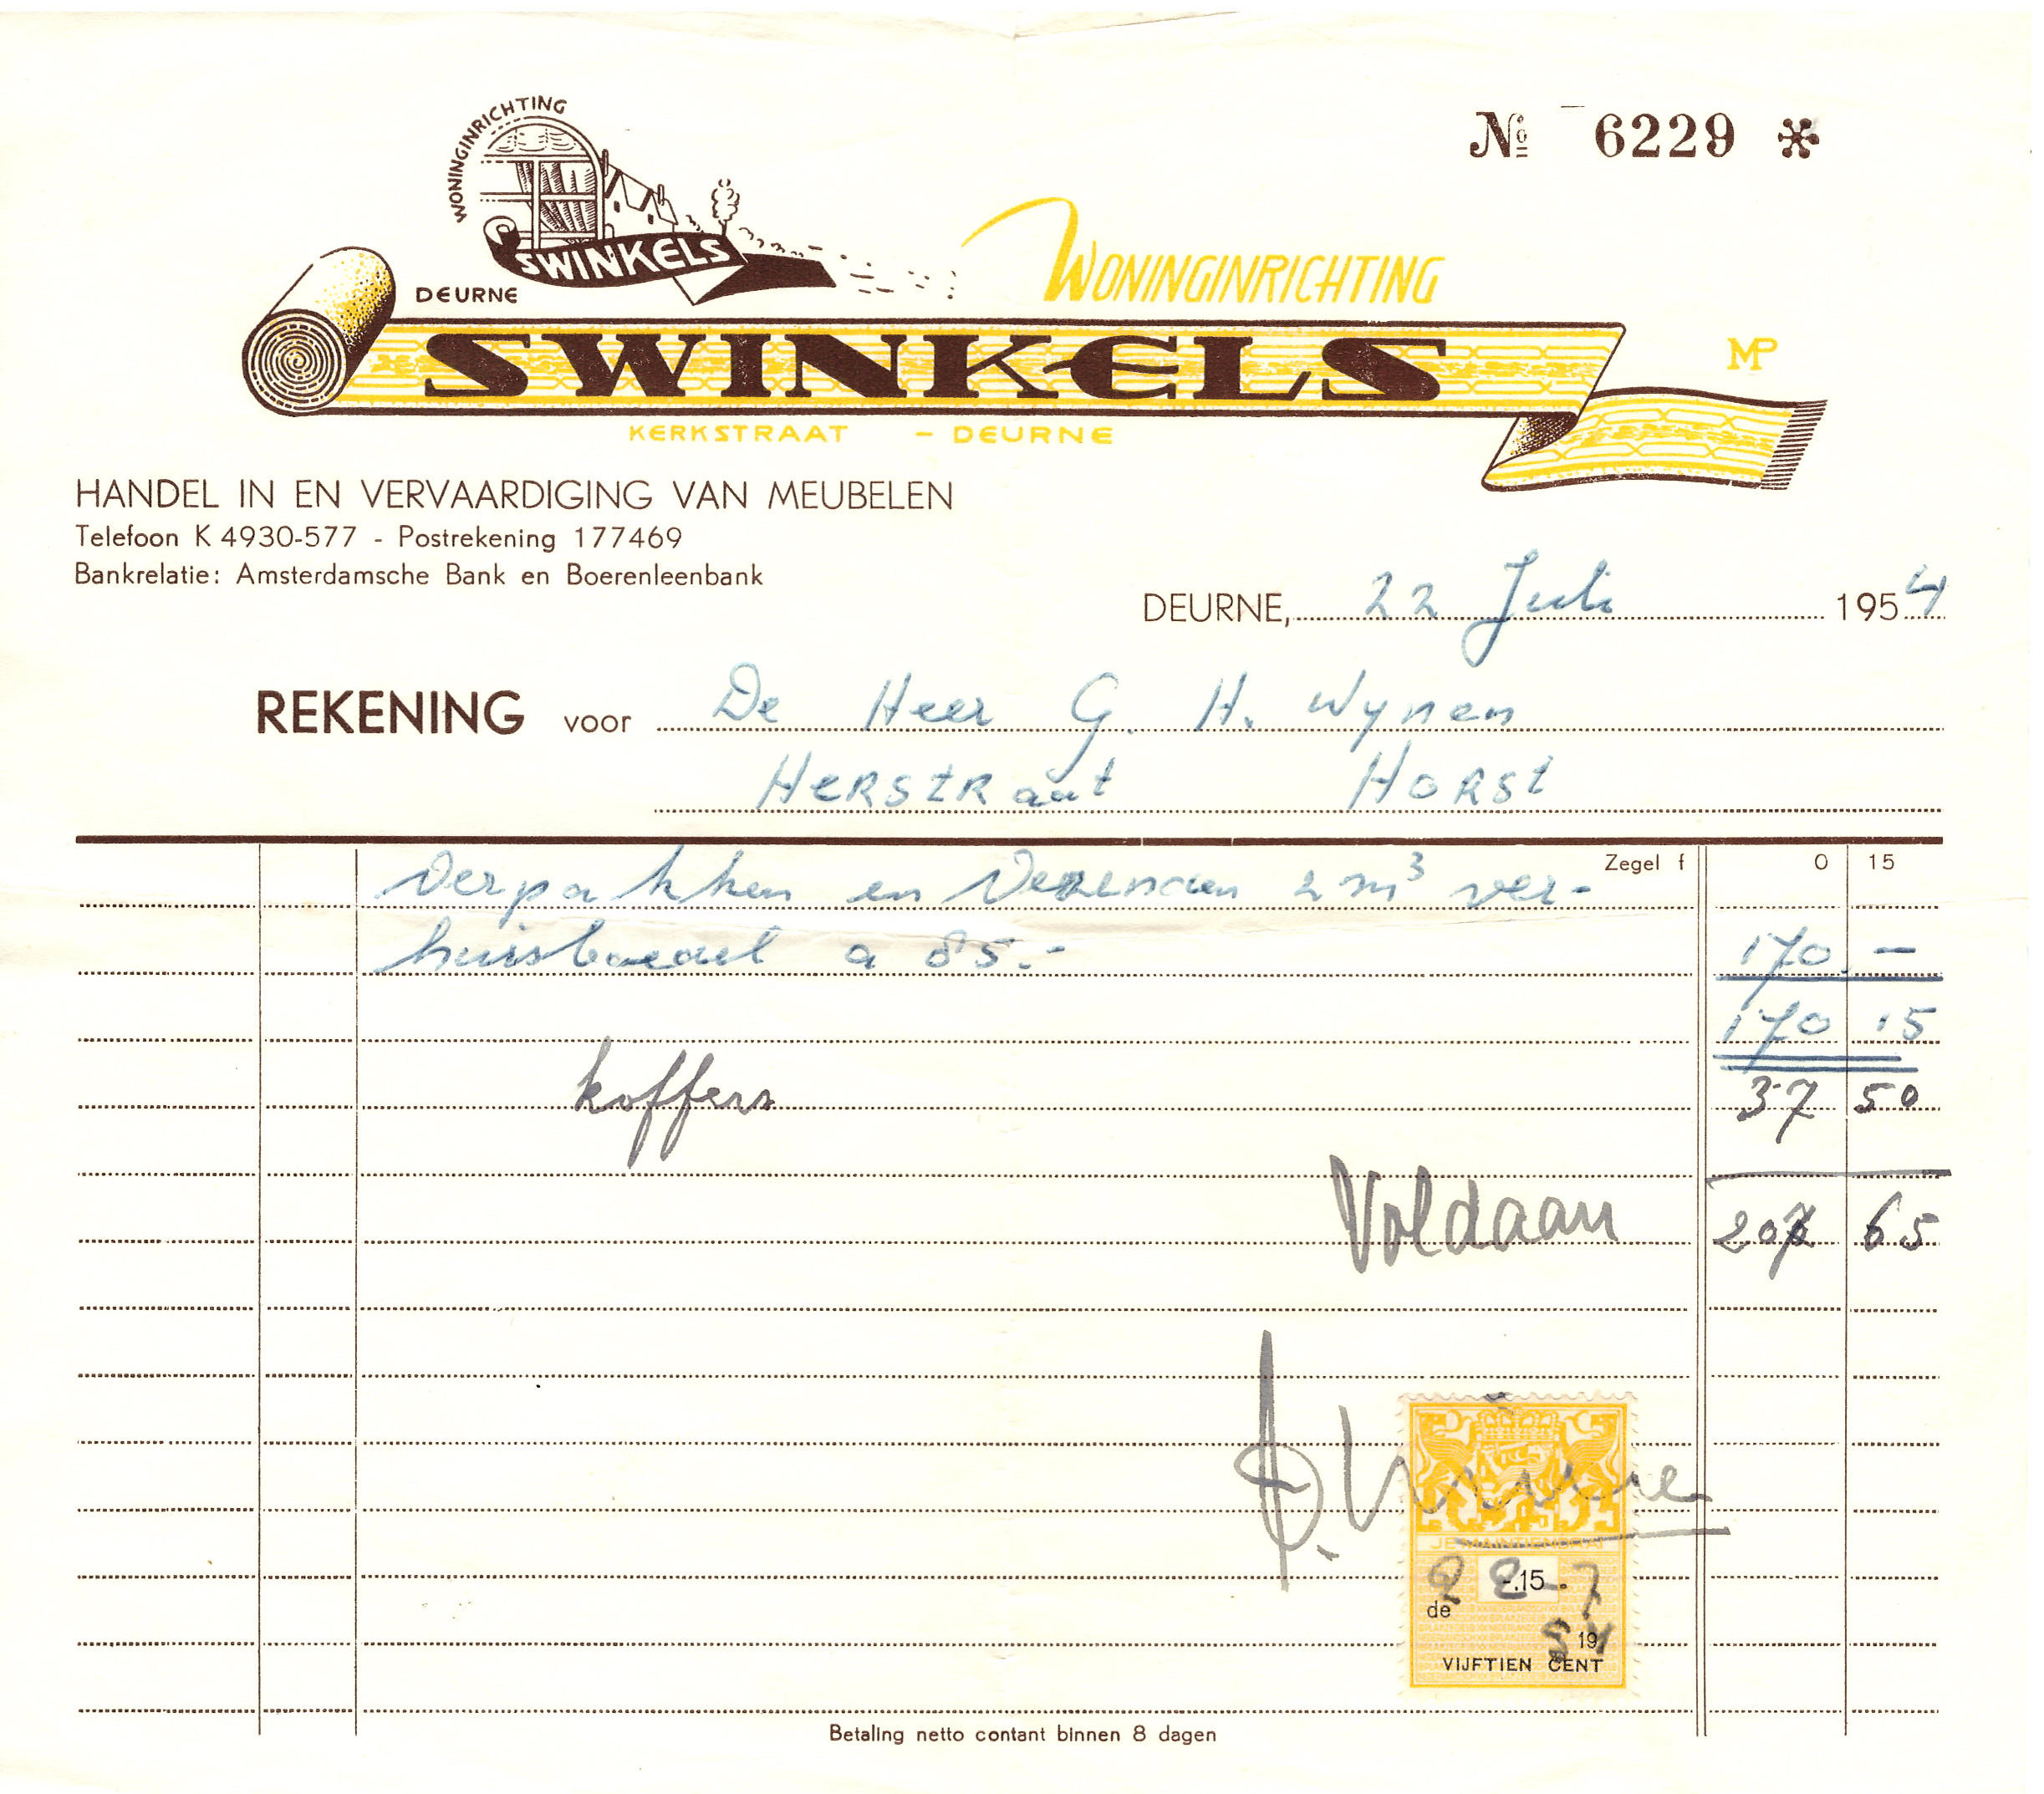 WONINGINRICHTING
SWINKELS
DEURNE
№ 6229
WONINGINRICHTING
SWINKELS
MP
KERKSTRAAT - DEURNE
HANDEL IN EN VERVAARDIGING VAN MEUBELEN
Telefoon K 4930-577 - Postrekening 177469
Bankrelatie: Amsterdamsche Bank en Boerenleenbank
DEURNE, 22 Juli 1954
REKENING voor De Heer G. H. Wynen
HERSTRaat HORSt
Zegel f 0 15
Verpakken en Verzenden 2 m³ ver-
huisboedel a 85.- 170.-
170 15
koffers 37 50
Voldaan 207 65
JE MAINTIENDRAI
22-7
-.15
de
54
19
VIJFTIEN CENT
Betaling netto contant binnen 8 dagen